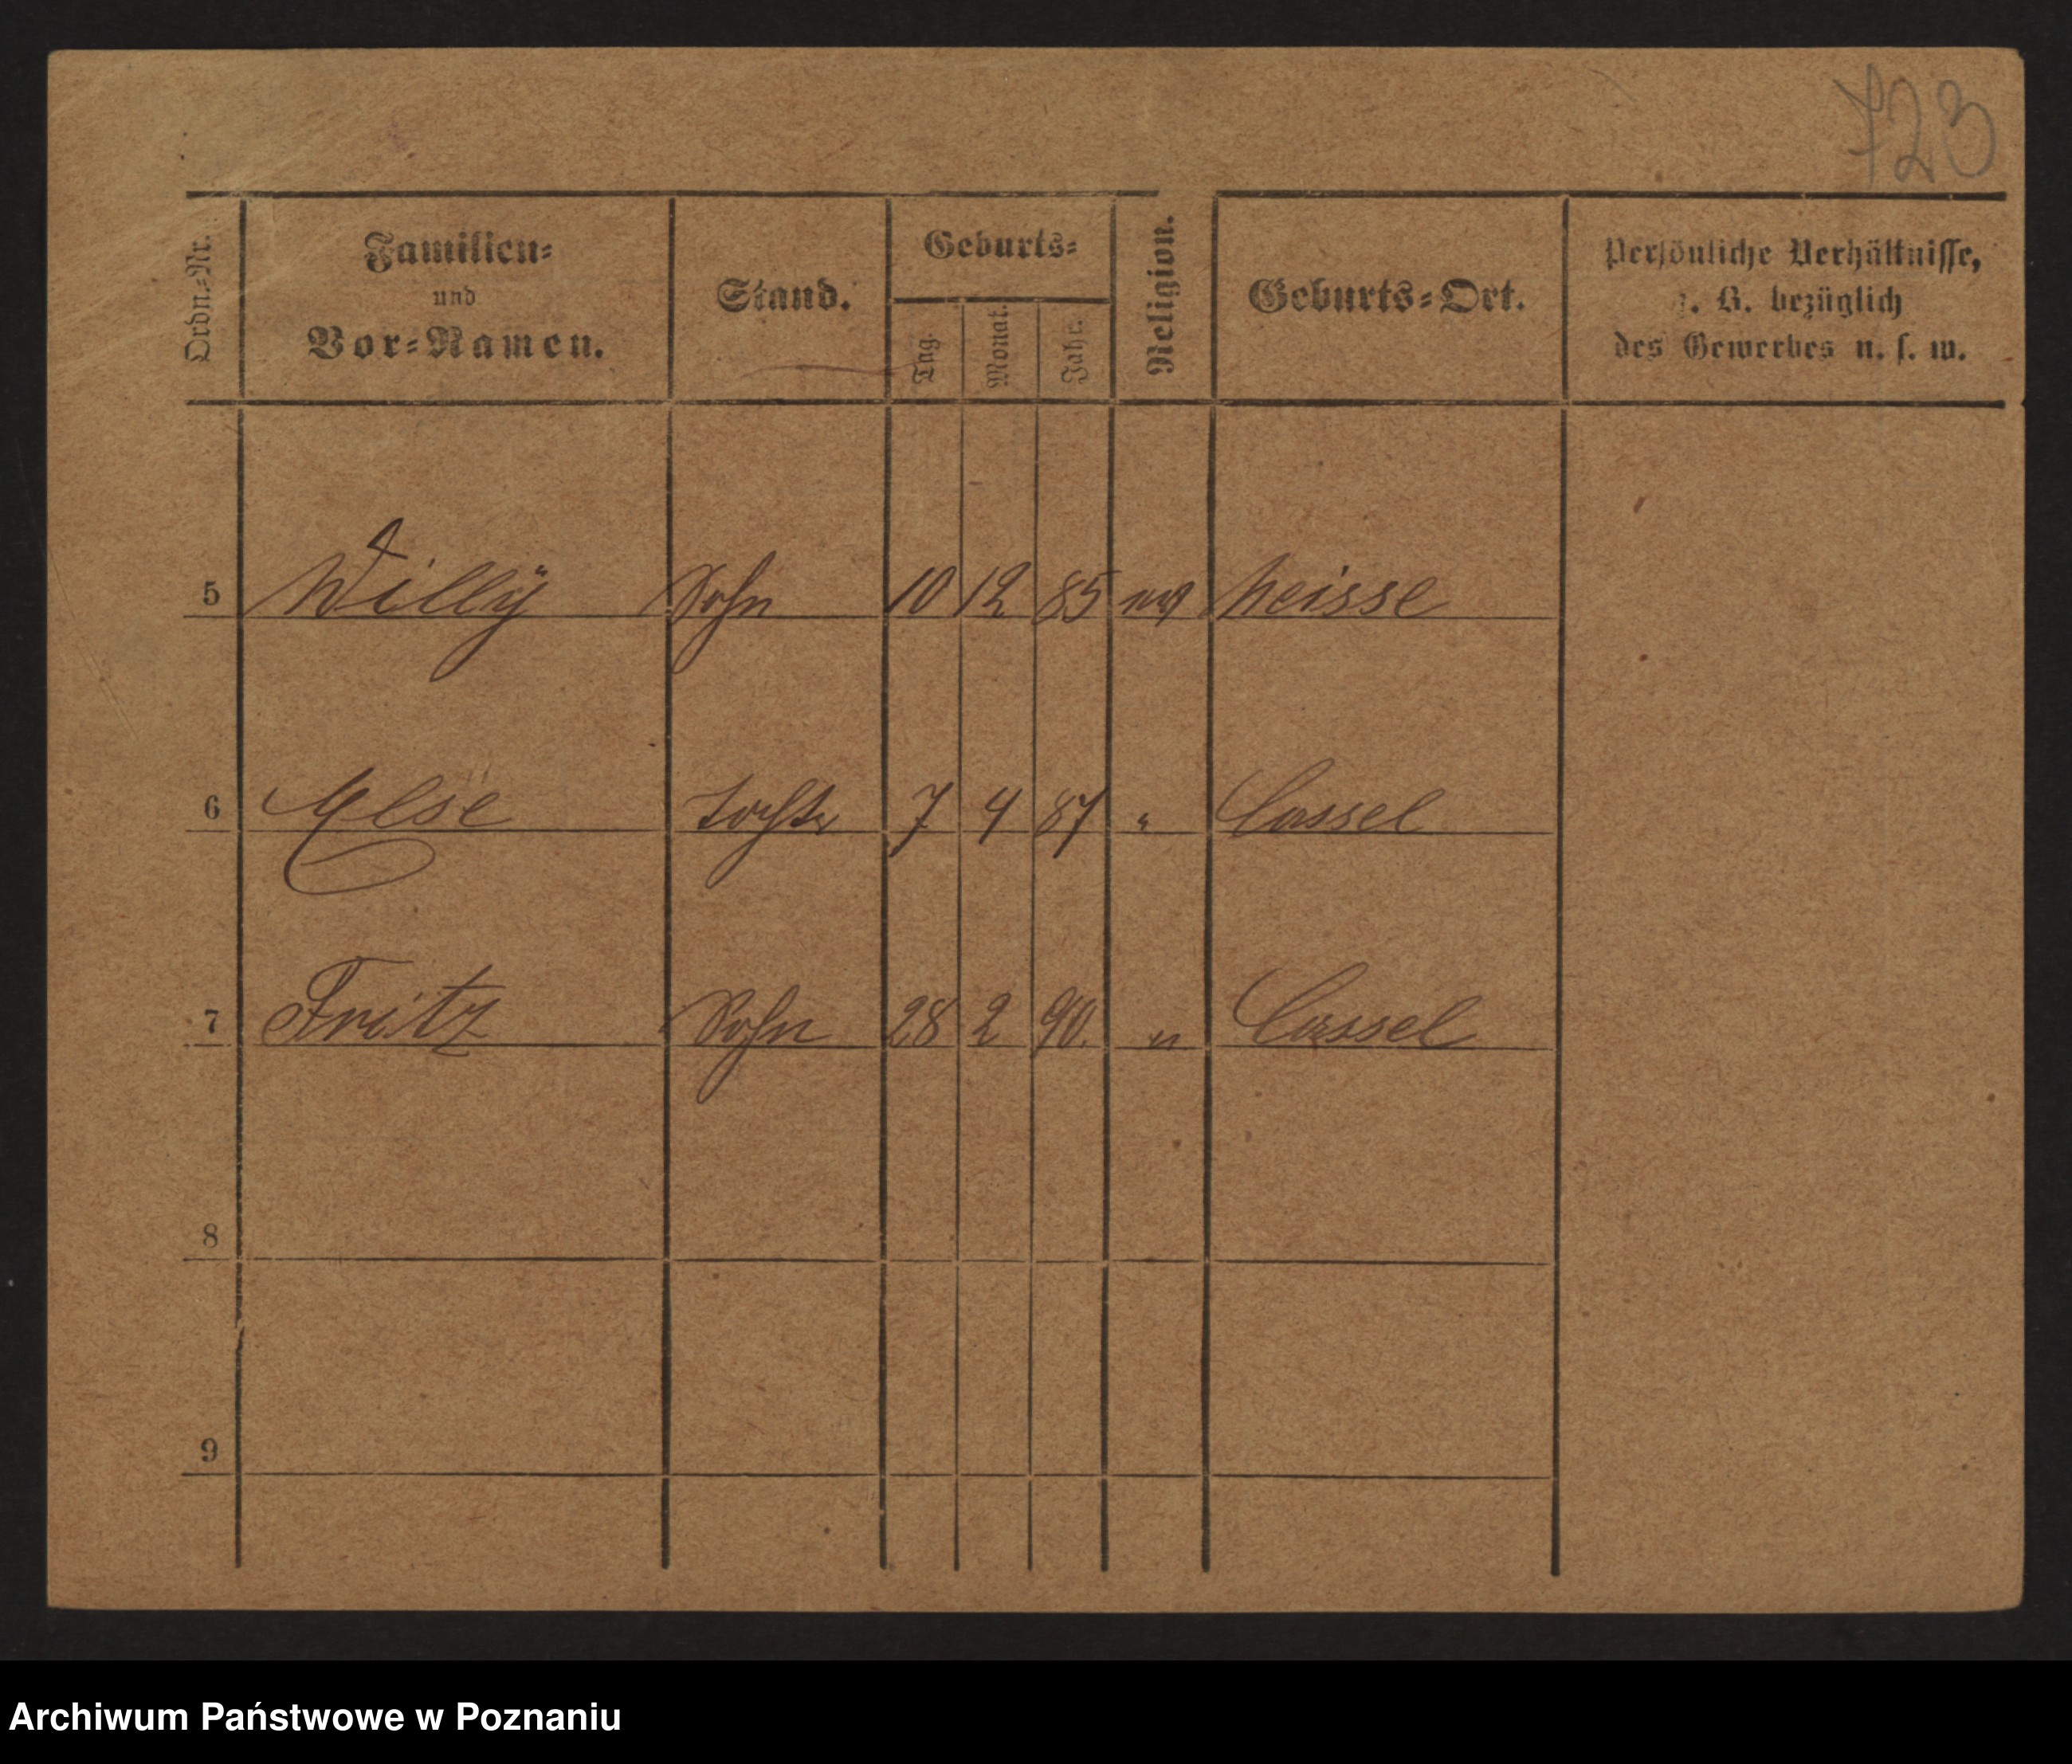 723
Ordn.-Nr.
Familien-
und
Vor-Namen.
Stand.
Geburts-
Tag.
Monat.
Jahr.
Religion.
Geburts-Ort.
Persönliche Verhältnisse,
z. B. bezüglich
des Gewerbes u. s. w.
5 Willÿ Sohn 10 12 85 Neisse
6 Else Tochter 7 4 87 " Cassel
7 Fritz Sohn 28 2 90. " Cassel
8
9
Archiwum Państwowe w Poznaniu